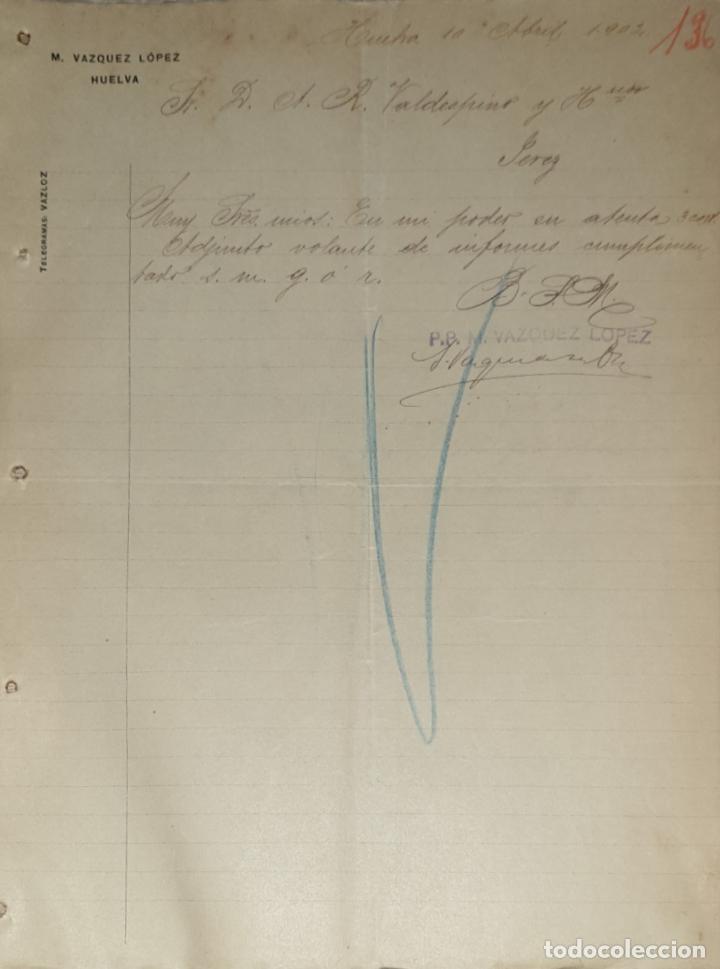 Huelva 10 Abril 1902
136
M. VAZQUEZ LÓPEZ
HUELVA
Sr. D. A. R. Valdespino y Hnos
Jerez
TELEGRAMAS: VAZLOZ
Muy Sres mios: En mi poder su atenta 3 cort.
Adjunto volante de informes cumplimen
tado s. m. g. ó r.
B. S. M.
P.P. M. VAZQUEZ LOPEZ
todocoleccion